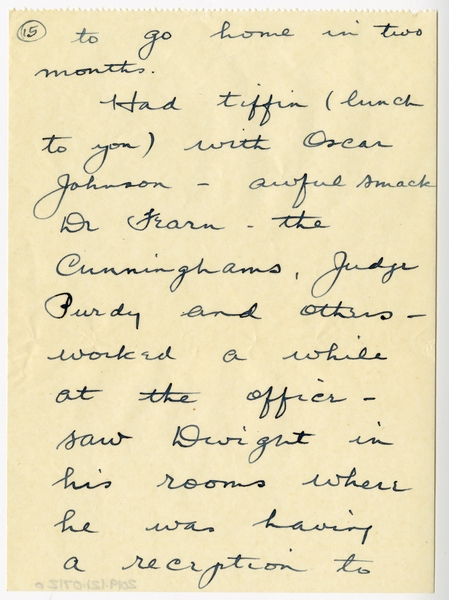 15
to go home in two
months.
Had tiffin (lunch
to you) with Oscar
Johnson - awful smack
Dr Fearn - the
Cunninghams, Judge
Purdy and others -
worked a while
at the office -
saw Dwight in
his rooms where
he was having
a reception to